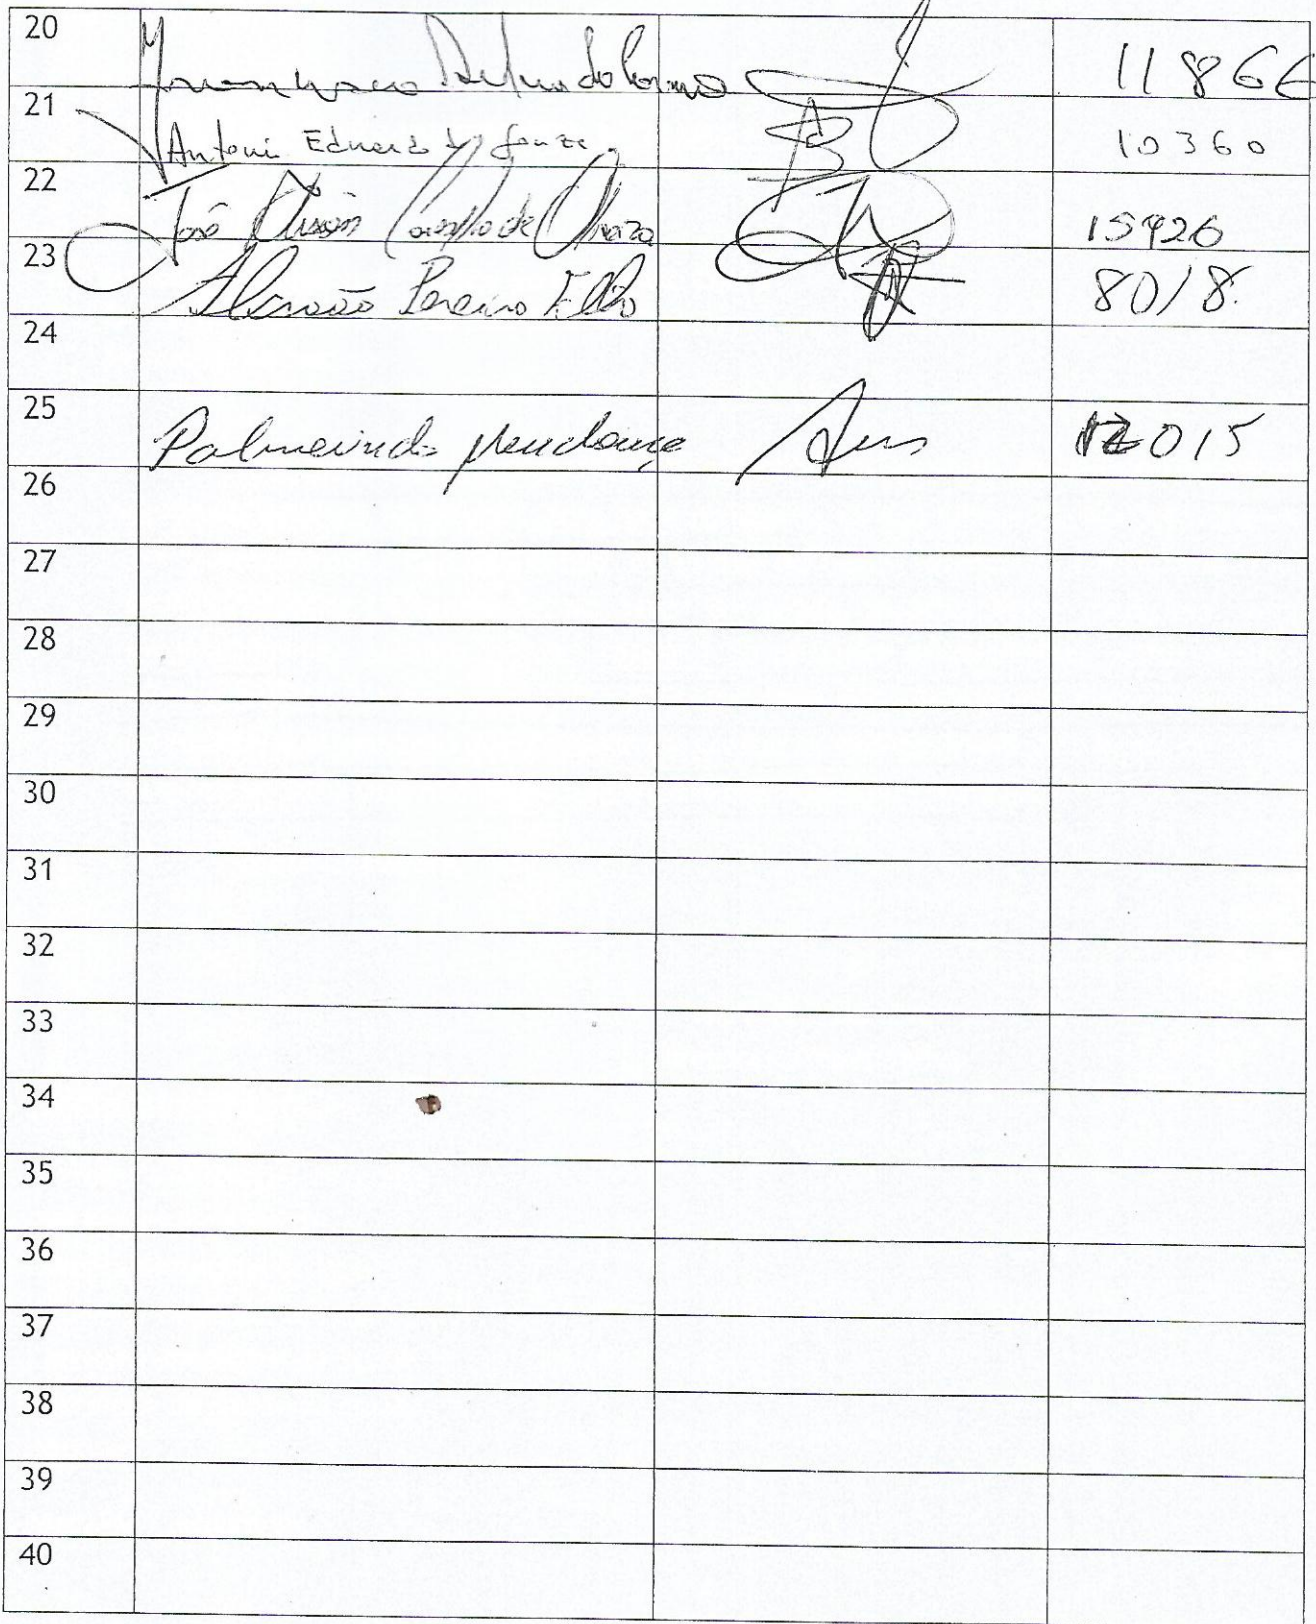 20 do 11866
21 Antoni Eduardo d Souza 10360
22 José de Oliveira 15926
23 Pereira Filho 8018
24
25 Palmeirindo Mendonça 12015
26
27
28
29
30
31
32
33
34
35
36
37
38
39
40